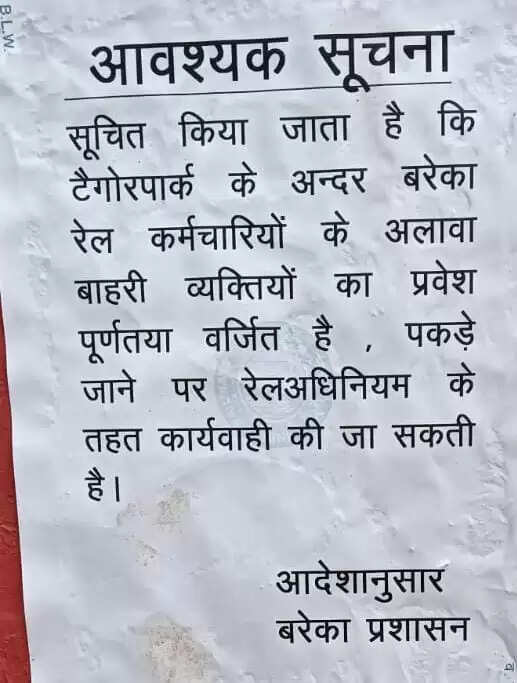 B.L.W.
आवश्यक सूचना
सूचित किया जाता है कि
टैगोरपार्क के अन्दर बरेका
रेल कर्मचारियों के अलावा
बाहरी व्यक्तियों का प्रवेश
पूर्णतया वर्जित है , पकड़े
जाने पर रेलअधिनियम के
तहत कार्यवाही की जा सकती
है।
आदेशानुसार
बरेका प्रशासन